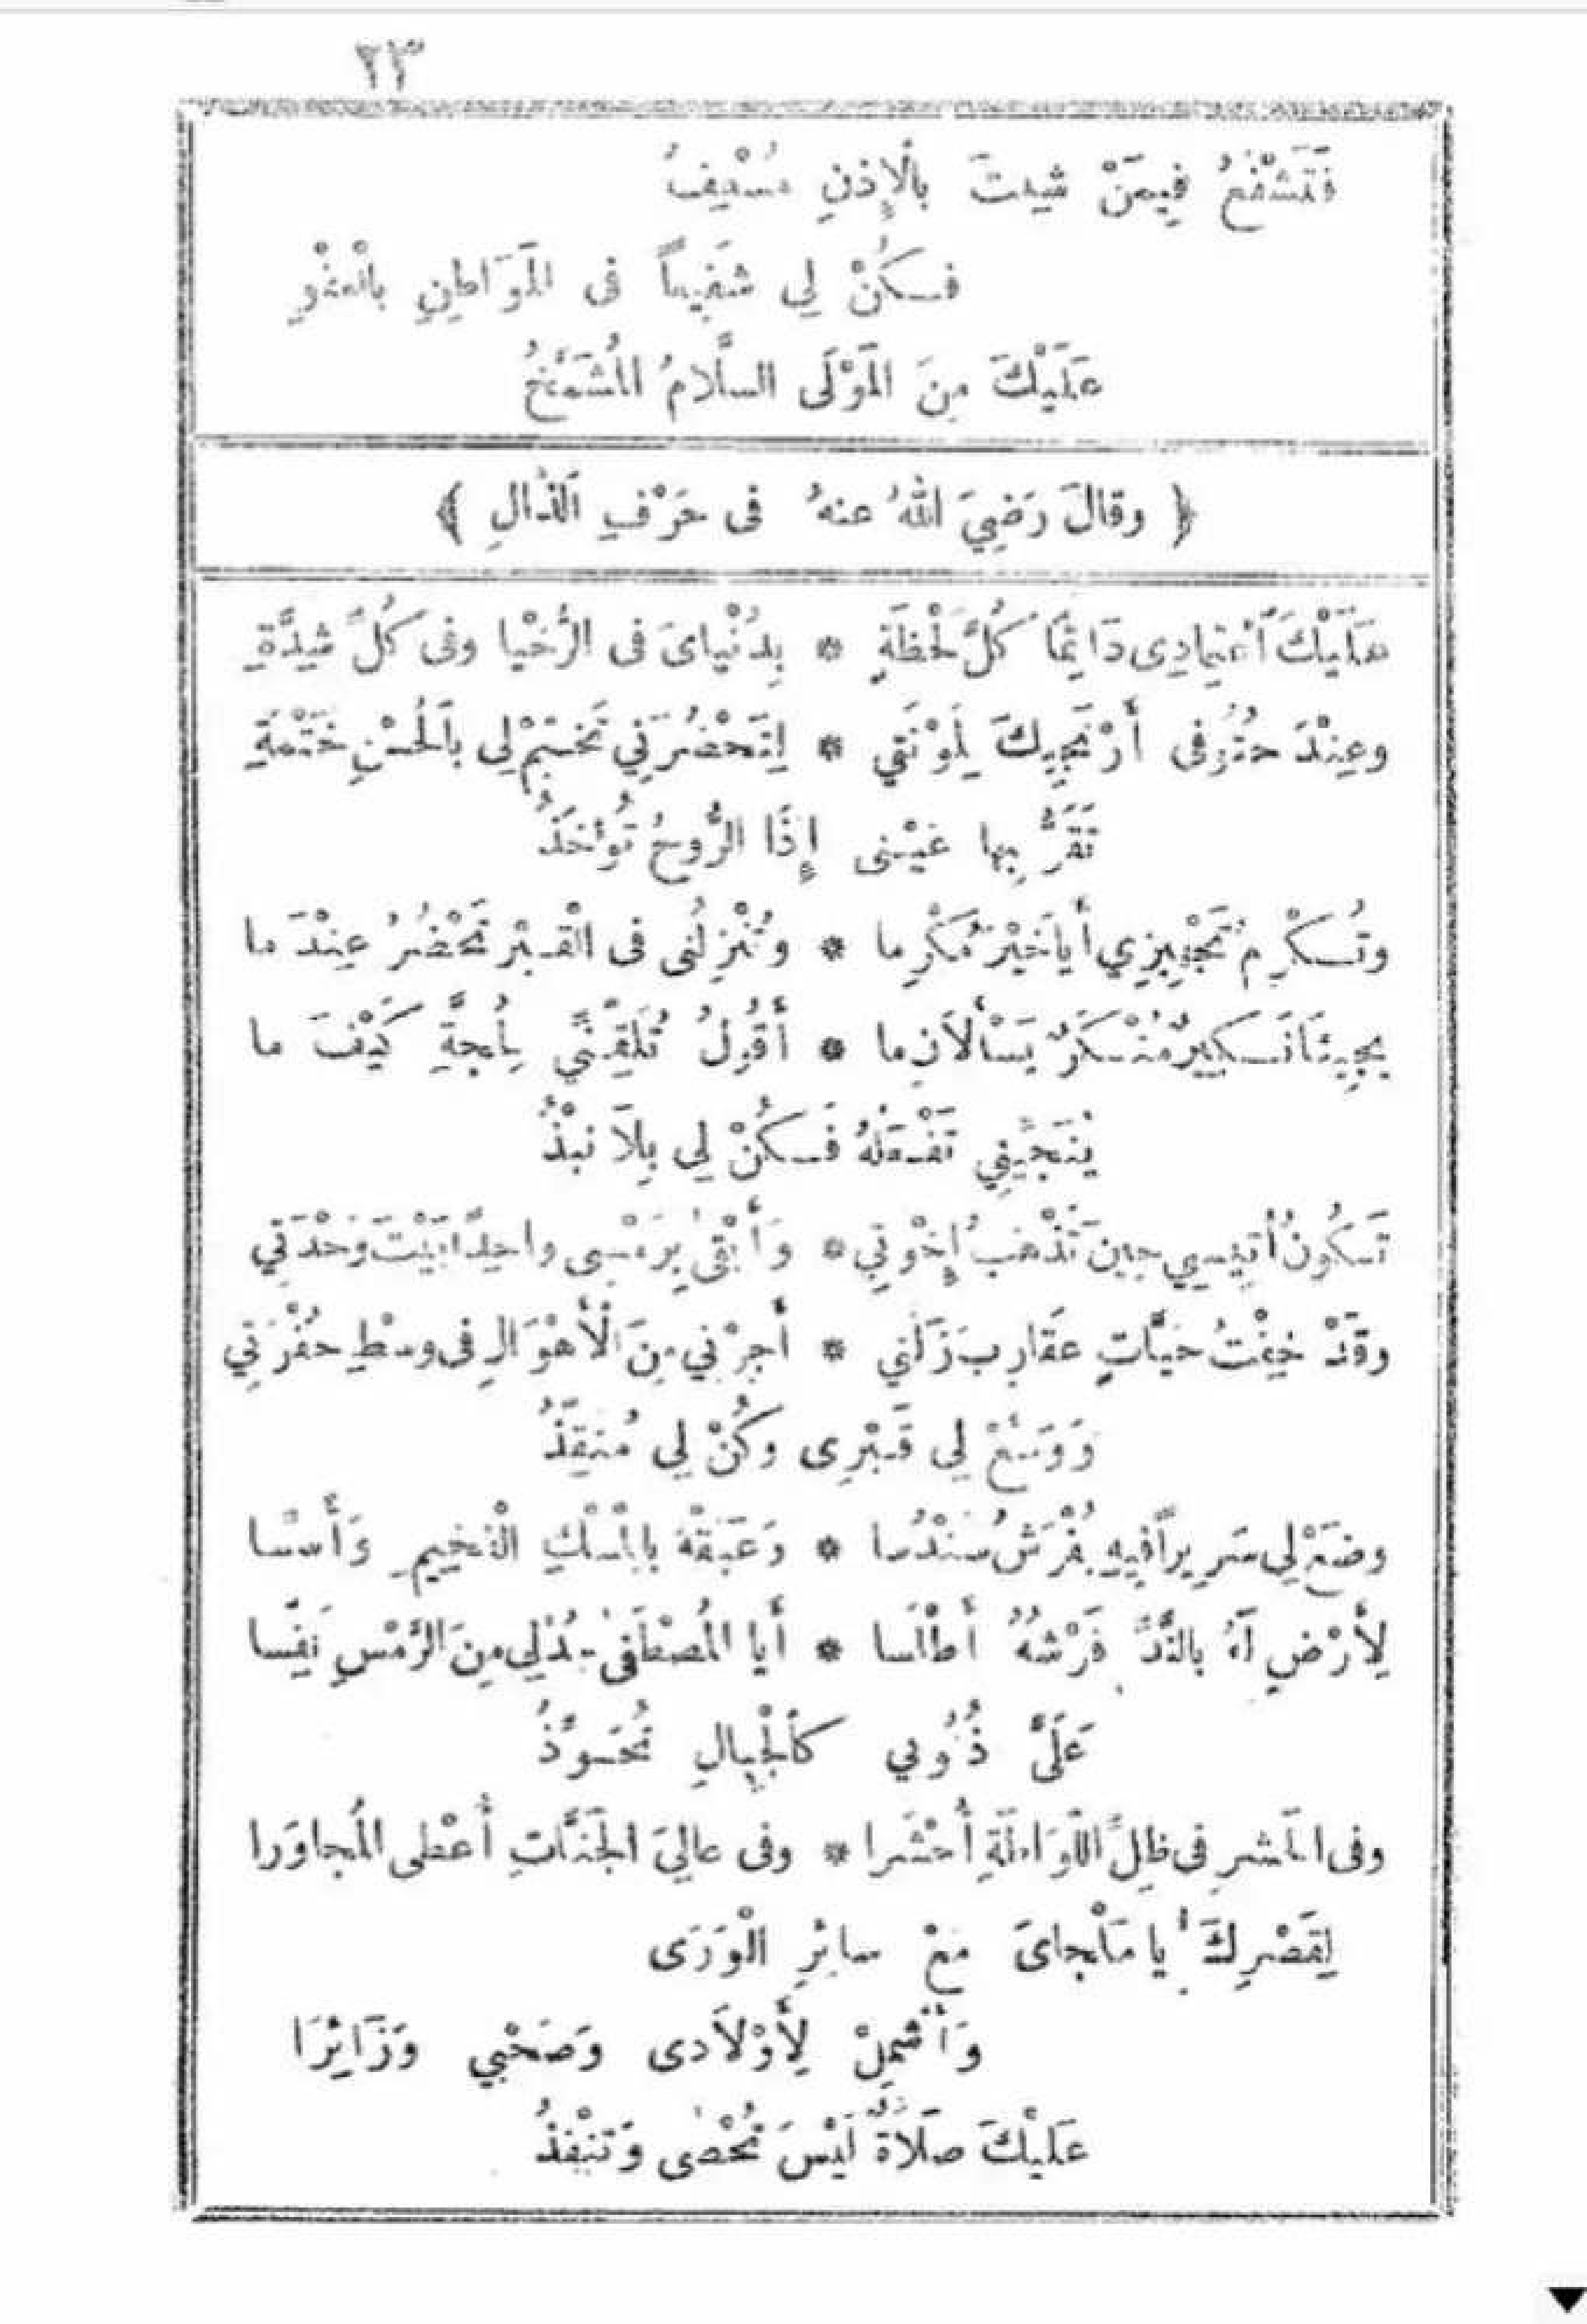 ٢٣
فَتَشْفَعُ فِيمَنْ شِيتَ بِالْإِذْنِ
فَكُنْ لِي شَفِيعاً فى الْمَوَاطِنِ بِالْعَفْوِ
عَلَيْكَ مِنَ الْمَوْلَى السَّلَامُ الْمُشَمَّخُ
﴿ وقالَ رَضِيَ اللهُ عنهُ فى حَرْفِ الذَّالِ ﴾
عَلَيْكَ اعْتِمادِى دَائِمًا كُلَّ لَحْظَةٍ * بِدُنْياىَ فى الرَّخْيا وفى كُلِّ شِدَّةِ
وعِنْدَ حتُوفى أَرْتَجِيكَ لِمَوْتَتِي * لِتَحْضُرَنِي تَخْتِمْ لِى بِالْحُسْنِ خَتْمَةِ
تَقَرُّ بِها عَيْنى إِذَا الرُّوحُ تُؤْخَذُ
وتُكْرِمُ تَجْهِيزِي أَيَا خَيْرَ مُكْرِما * وتُنْزِلُنى فى الْقَبْرِ تَحْضُرُ عِنْدَ ما
يَجِيئَا نَكِيرٌ مُنْكَرٌ يَسْأَلَانِ ما * أَقُولُ تُلَقِّنِّي بِلُجَّةِ كَيْفَ ما
يُنَجِّينِي تَفْعَلْهُ فَكُنْ لِي بِلَا نبْذُ
تَكُونُ أَنِيسِي حِينَ تَذْهَبُ إِخْوتِي * وَأَبْقٰى بِرَمْسِى واحِدًا بَيْتَ وَحْدَتِي
وقَدْ خِفْتُ حَيَّاتٍ عَقَارِبَ زَلَّتِي * أَجِرْنِي مِنَ الْأَهْوَالِ فى وسْطِ حُفْرَتِي
وَوَسِّعْ لِي قَبْرِى وكُنْ لِي مُنقِذُ
وضَعْ لِى سَرِيراً فِيهِ فُرْشُ سُنْدُسا * وَعَبِّقْهُ بِالْمِسْكِ الْفَخِيمِ وَأَسِّسا
لِأَرْضٍ لَهُ بالنَّدِّ فَرْشُهُ أَطْلَسا * أَيا الْمُصْطَفٰى جُدْ لِى مِنَ الرَّمْسِ نَفِّسا
عَلَىَّ ذُنُوبِي كَالْجِبالِ تُحَوِّذُ
وفى الحشرِ فى ظلِّ اللِّوَا لَمَّةِ أُحْشَرا * وفى عالِيَ الْجَنَّاتِ أُعْطى الْمُجاوَرا
لِقَصْرِكَ يا مَلْجاىَ مَعْ سائِرِ الْوَرَى
وَاشْمِلْ لِأَوْلَادى وَصَحْبِي وَزَائِرَا
عَلَيْكَ صَلَاةٌ لَيْسَ تُحْصٰى وَتنْفذُ